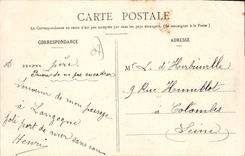 CARTE POSTALE
La Correspondance au recto n'est pas acceptée par tous les pays étrangers. (Se renseigner à la Poste.)
CORRESPONDANCE
ADRESSE
père
Souvenir de mon passage
à Langogne
joli port de mer sans eau
Henri
M. L. d'Herbinville
9 Rue Humblot
à Colombes
Seine